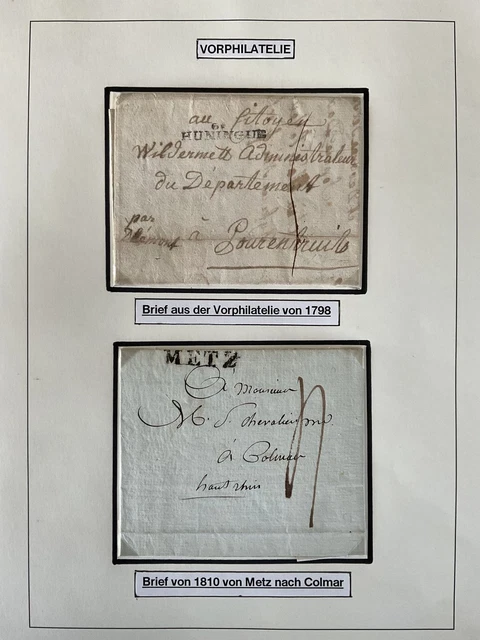 VORPHILATELIE
au Citoyen
HUNINGUE
Wildermett Administrateur
du Département
par
Délémont à Pourentruit
Brief aus der Vorphilatelie von 1798
METZ
A Monsieur
Mr. chevalier
à Colmar
haut rhin
Brief von 1810 von Metz nach Colmar